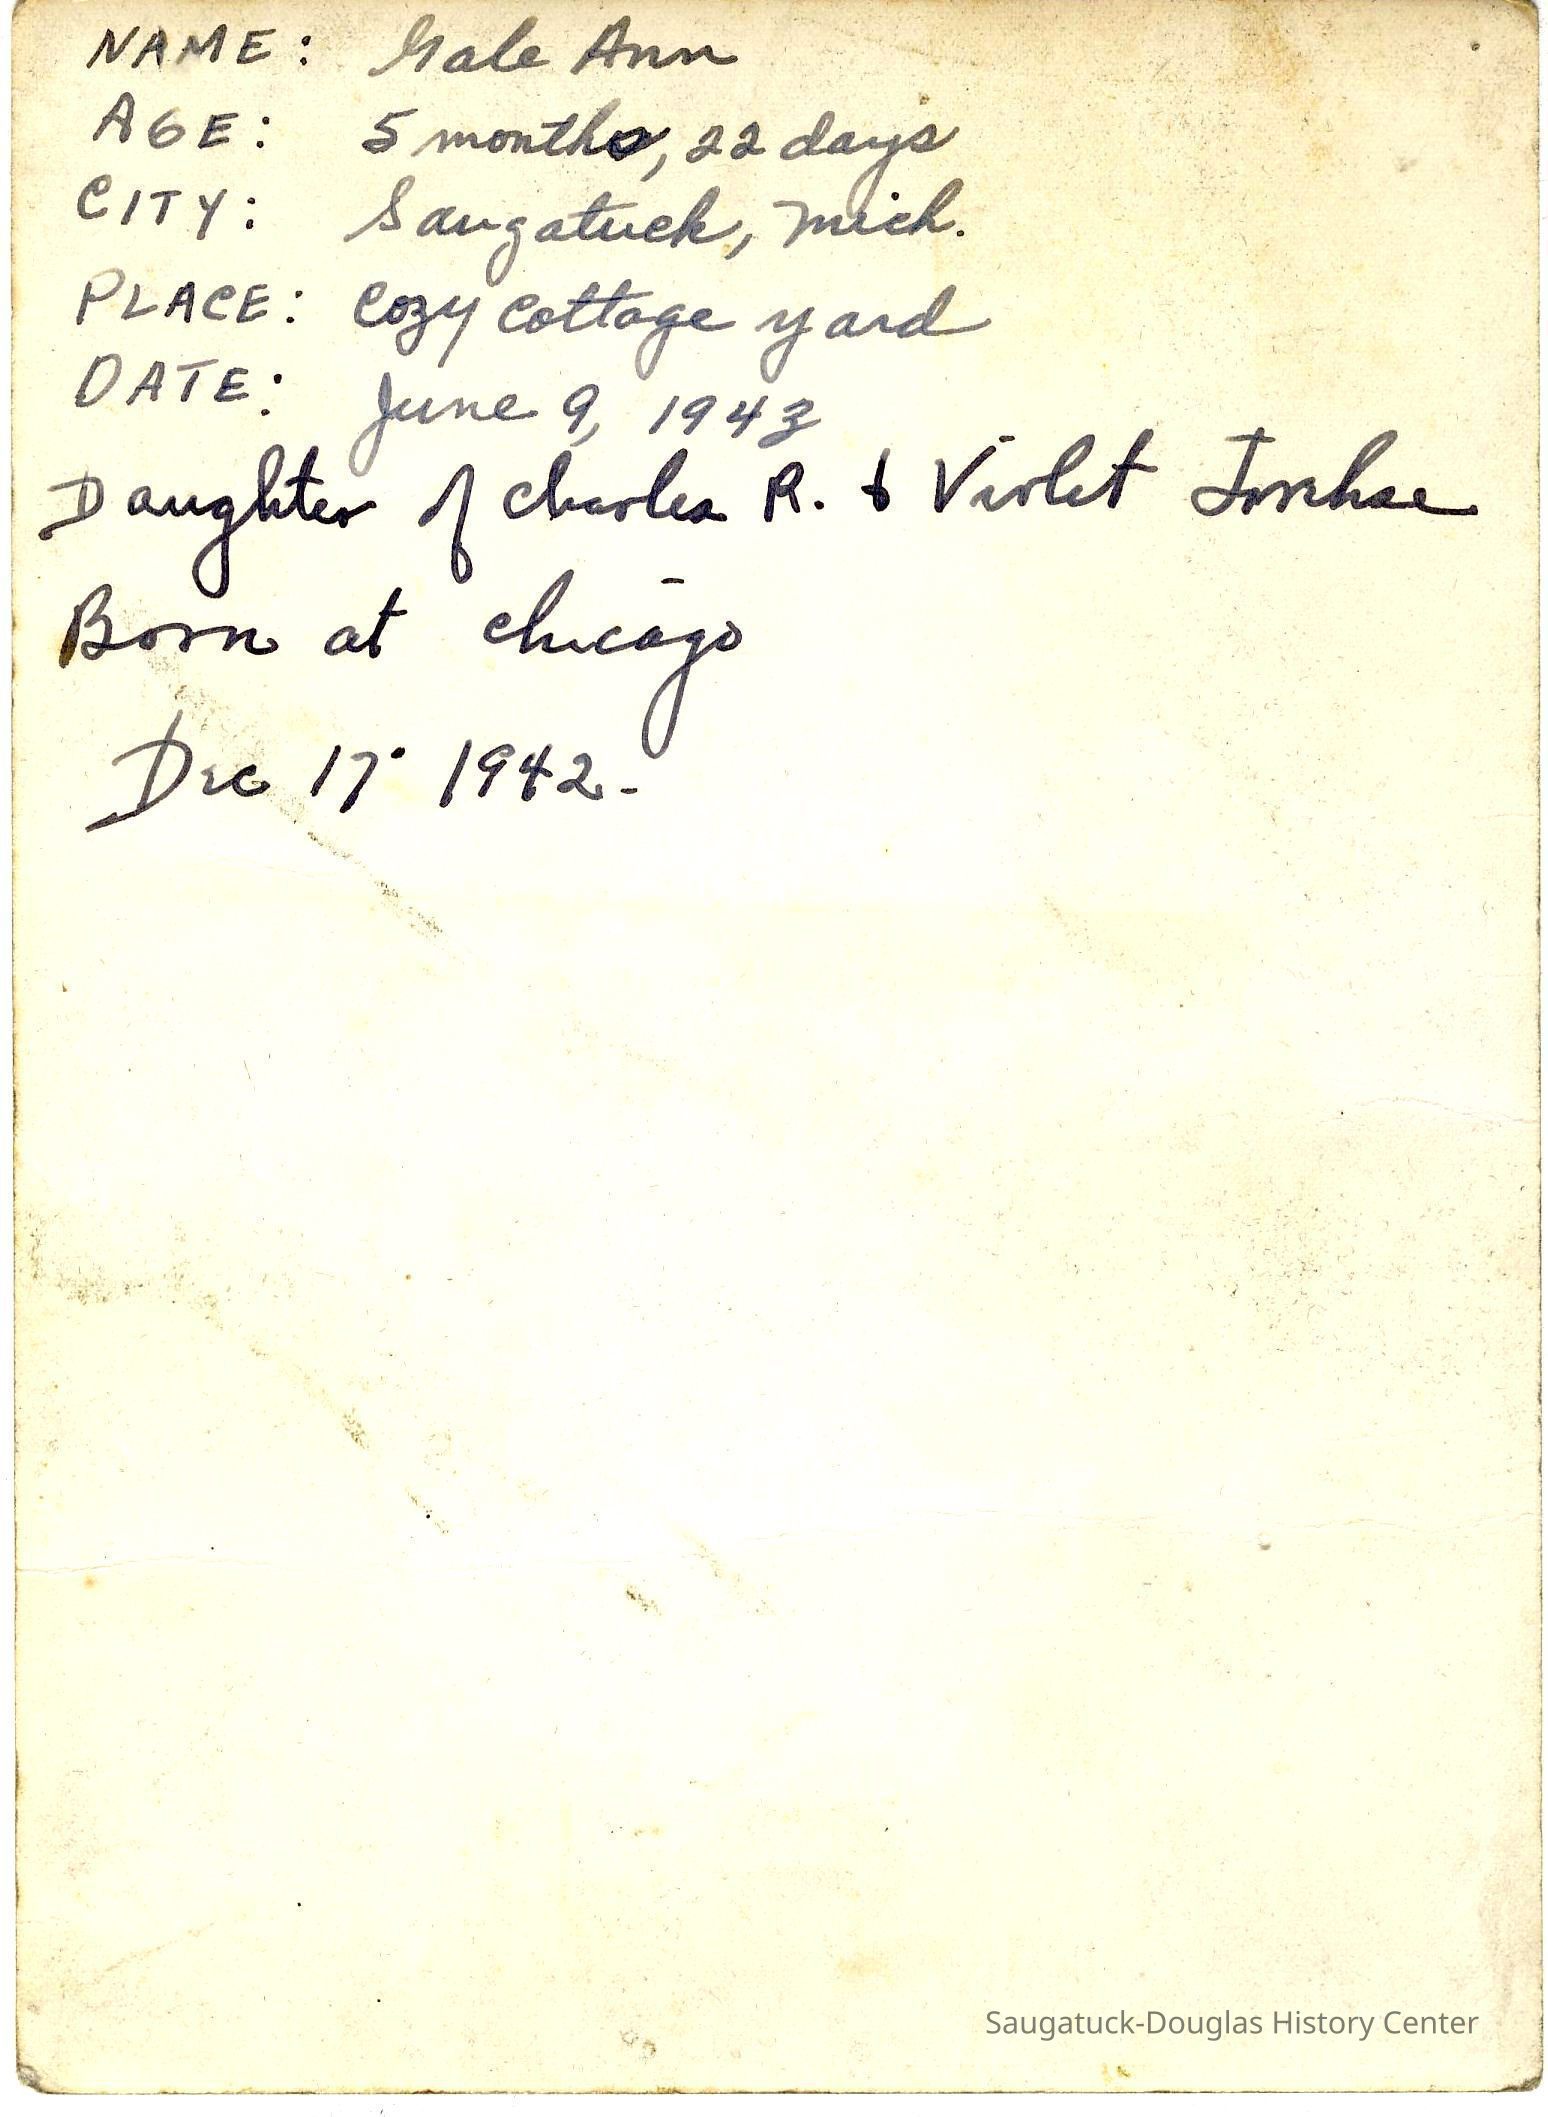 NAME: Gale Ann
AGE: 5 months, 22 days
CITY: Saugatuck, Mich.
PLACE: Cozy Cottage yard
DATE: June 9, 1943
Daughter of Charles R. & Violet
Born at Chicago
Dec 17 1942-
Saugatuck-Douglas History Center